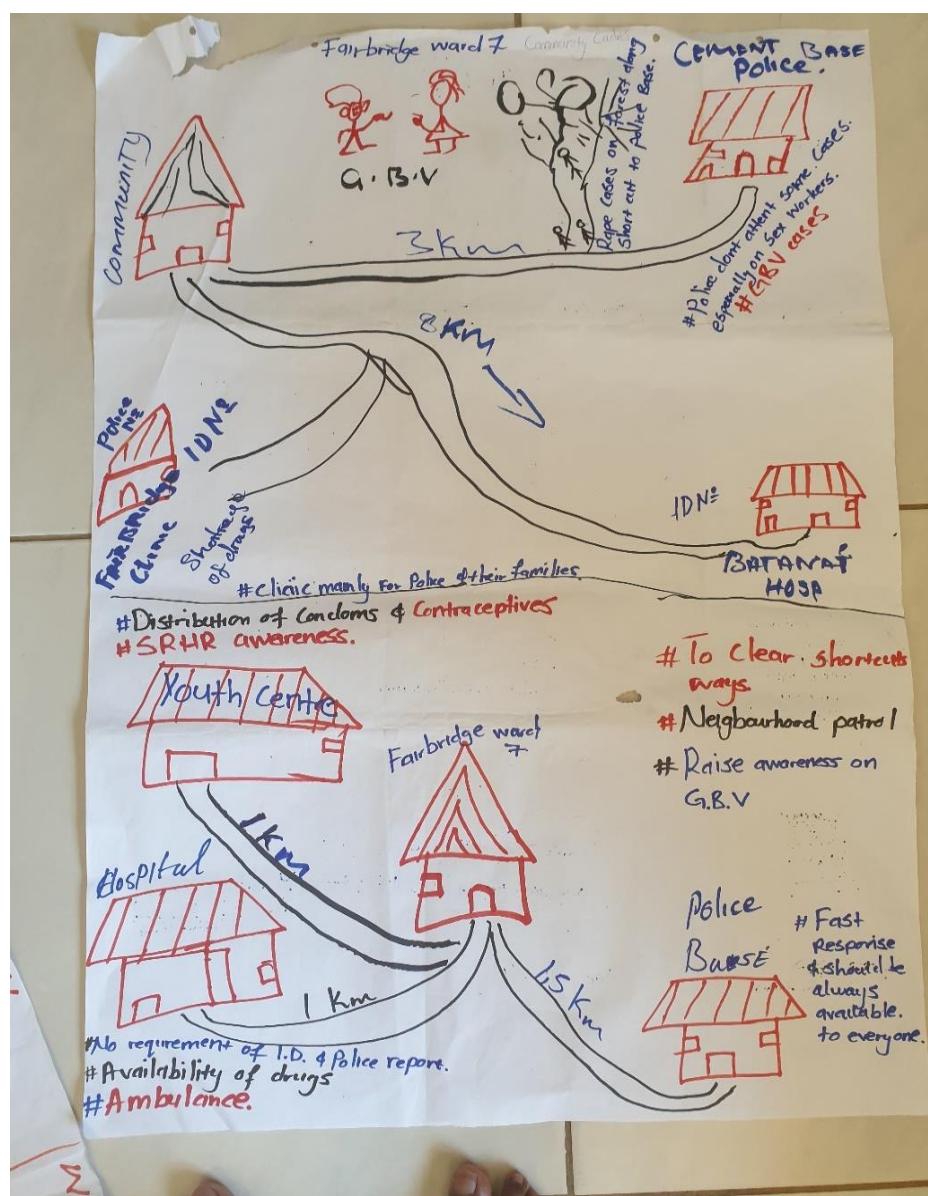 Fairbridge ward 7
CEMENT BASE
Police.
COMMUNITY
G.B.V
Rape Cases on forest along
Short cut to police Base.
3Km
#Police dont attent some cases
especially on Sex Workers.
#GBV cases
8Km
Police
No
IDNo
FAIRBRIDGE
Clinic
Shortage
of drugs
IDNo
BATANAI
HOSP
#Clinic mainly For Police & their families.
#Distribution of Condoms & Contraceptives
#SRHR awareness.
Youth centre
# To Clear shortcuts
ways.
#Neigbourhood patrol
# Raise awareness on
G.B.V
Fairbridge ward
7
1Km
Hospital
1Km
1,5 Km
Police
BASE
# Fast
Response
& should be
always
available.
to everyone.
#No requirement of I.D. & Police report.
#Availability of drugs
#Ambulance.